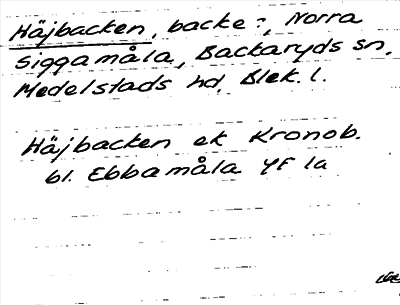 Häjbacken, backe?, Norra
Siggamåla, Backaryds sn,
Medelstads hd, Blek. l.
Häjbacken ek Kronob.
bl. Ebbamåla 4F 1a